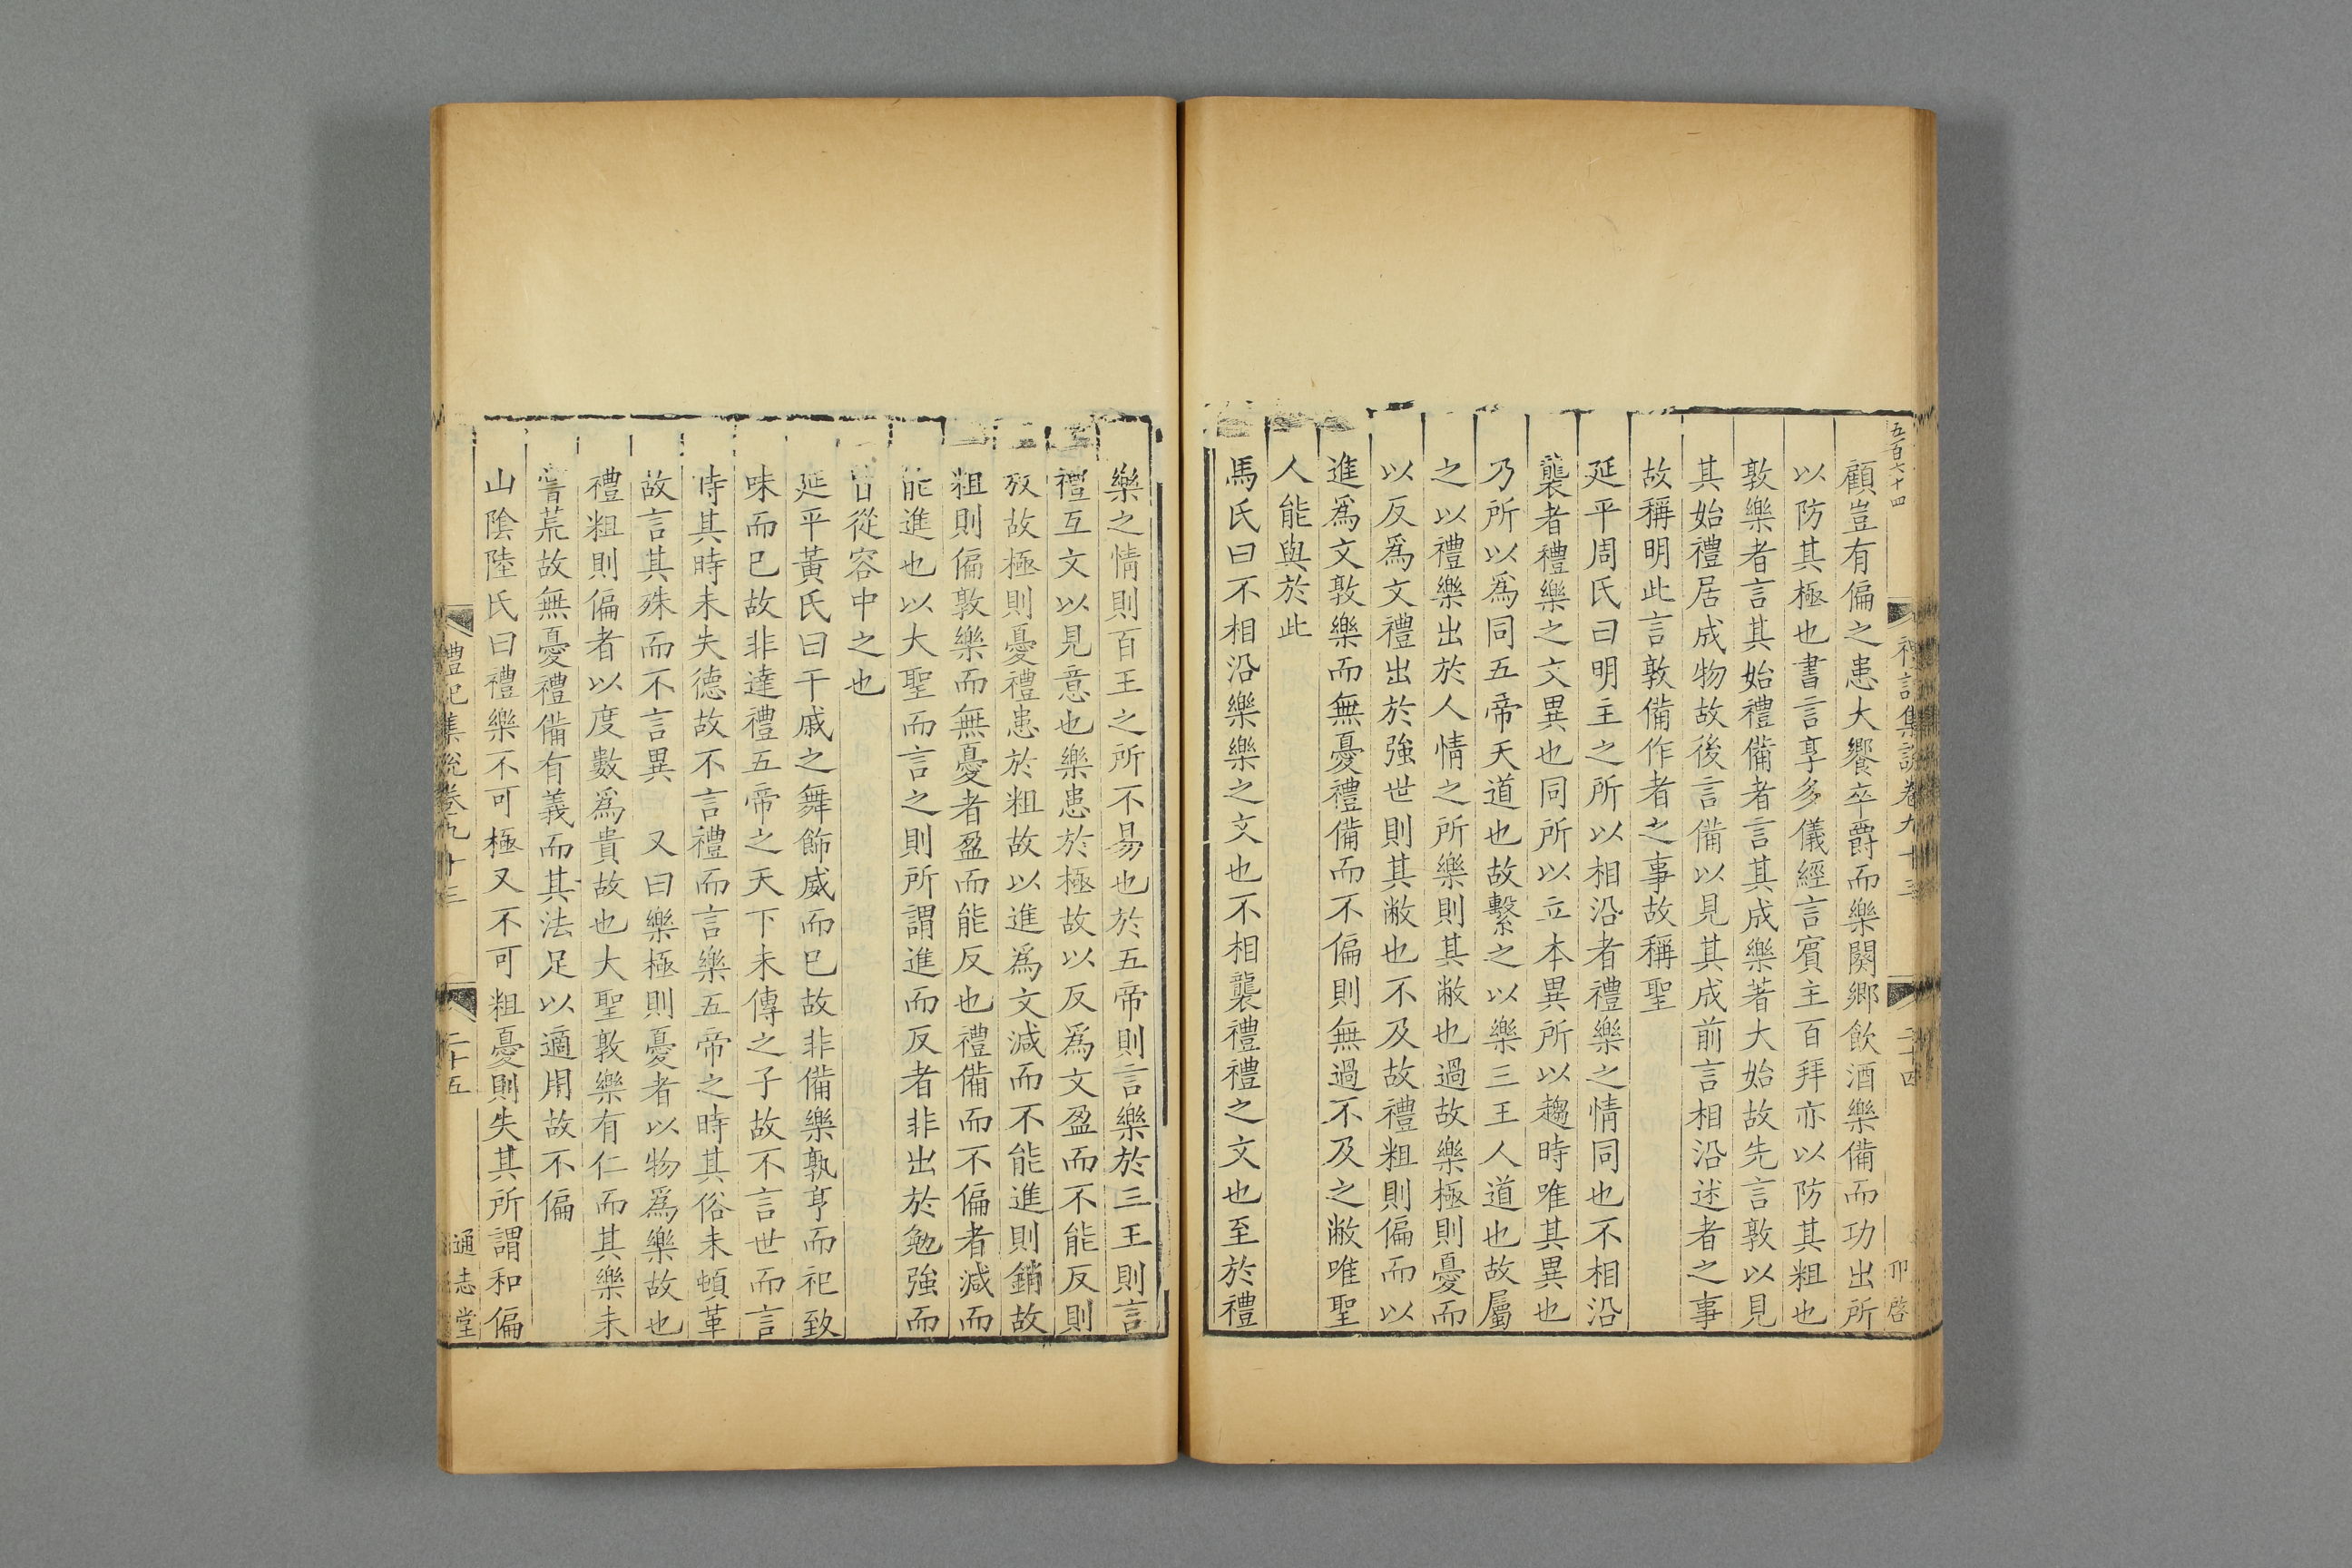 五百六十四
禮記集說卷九十三
二十四
卬啓
顧豈有偏之患大饗卒爵而樂闋鄉飲酒樂備而功出所
以防其極也書言享多儀經言賓主百拜亦以防其粗也
敦樂者言其始禮備者言其成樂著大始故先言敦以見
其始禮居成物故後言備以見其成前言相沿述者之事
故稱明此言敦備作者之事故稱聖
延平周氏曰明主之所以相沿者禮樂之情同也不相沿
襲者禮樂之文異也同所以立本異所以趨時唯其異也
乃所以爲同五帝天道也故繫之以樂三王人道也故屬
之以禮樂出於人情之所樂則其敝也過故樂極則憂而
以反爲文禮出於強世則其敝也不及故禮粗則偏而以
進爲文敦樂而無憂禮備而不偏則無過不及之敝唯聖
人能與於此
馬氏曰不相沿樂樂之文也不相襲禮禮之文也至於禮
樂之情則百王之所不易也於五帝則言樂於三王則言
禮互文以見意也樂患於極故以反爲文盈而不能反則
放故極則憂禮患於粗故以進爲文減而不能進則銷故
粗則偏敦樂而無憂者盈而能反也禮備而不偏者減而
能進也以大聖而言之則所謂進而反者非出於勉強而
皆從容中之也
延平黃氏曰干戚之舞飾威而已故非備樂孰亨而祀致
味而已故非達禮五帝之天下未傳之子故不言世而言
時其時未失德故不言禮而言樂五帝之時其俗未頓革
故言其殊而不言異　又曰樂極則憂者以物爲樂故也
禮粗則偏者以度數爲貴故也大聖敦樂有仁而其樂未
嘗荒故無憂禮備有義而其法足以適用故不偏
山陰陸氏曰禮樂不可極又不可粗憂則失其所謂和偏
禮記集說卷九十三
二十五
通志堂